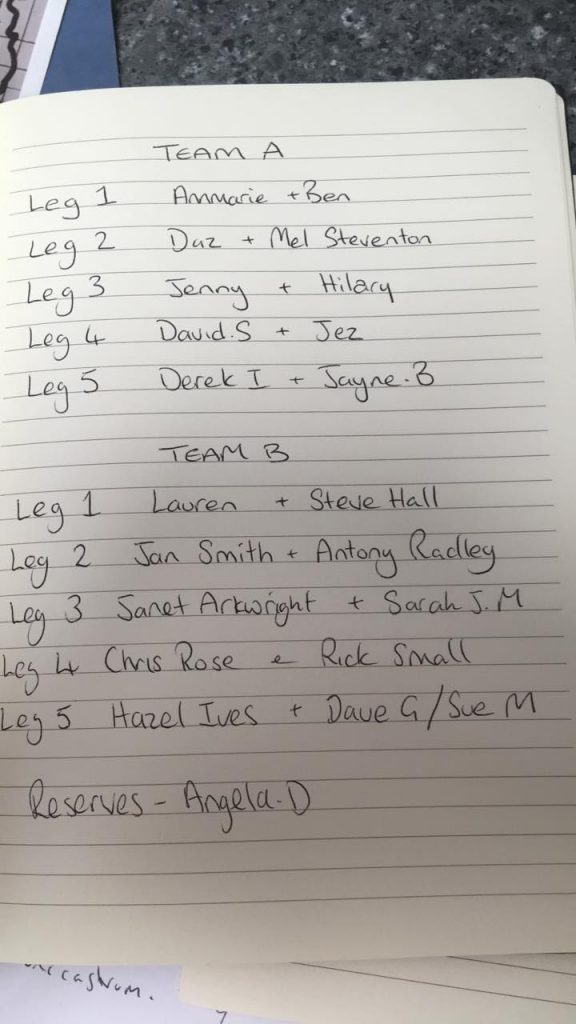 TEAM A
Leg 1 Annmarie + Ben
Leg 2 Daz + Mel Steventon
Leg 3 Jenny + Hilary
Leg 4 David.S + Jez
Leg 5 Derek I + Jayne.B
TEAM B
Leg 1 Lauren + Steve Hall
Leg 2 Jan Smith + Antony Radley
Leg 3 Janet Arkwright + Sarah J.M
Leg 4 Chris Rose e Rick Small
Leg 5 Hazel Ives + Dave G/Sue M
Reserves - Angela.D